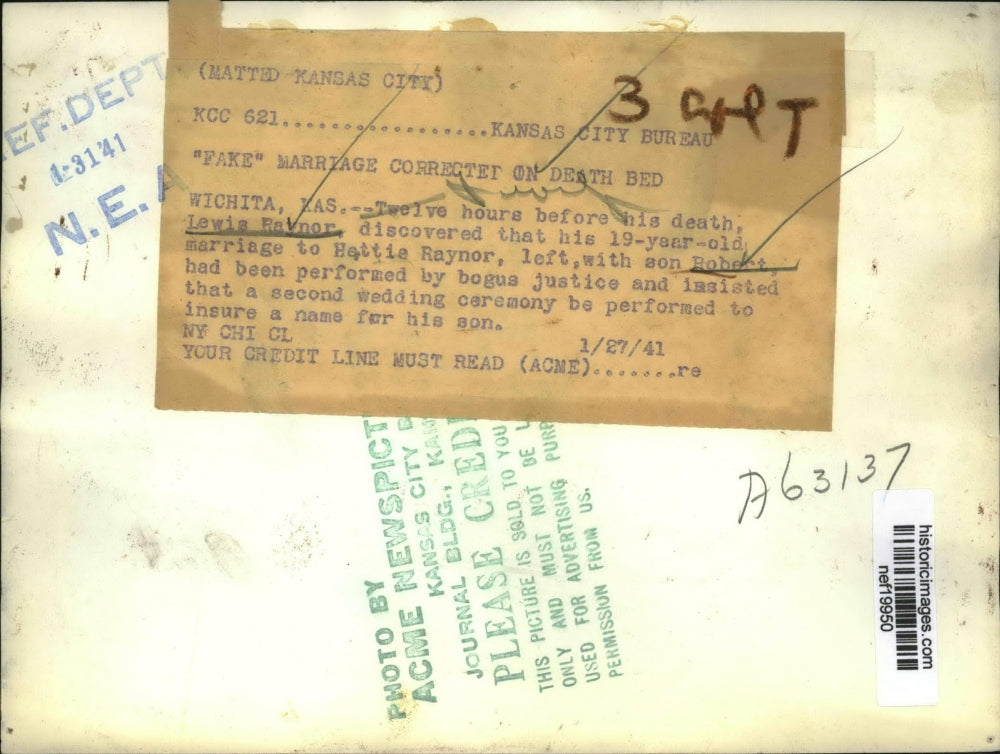 (MATTED KANSAS CITY)
3
KCC 621..................KANSAS CITY BUREAU
"FAKE" MARRIAGE CORRECTED ON DEATH BED
WICHITA, KAS.--Twelve hours before his death,
Lewis Raynor, discovered that his 19-year-old
marriage to Hettie Raynor, left,with son Robert,
had been performed by bogus justice and insisted
that a second wedding ceremony be performed to
insure a name for his son.
NY CHI CL
1/27/41
YOUR CREDIT LINE MUST READ (ACME)........re
EF. DEPT
1-31'41
N. E. A
PHOTO BY
ACME NEWSPICT
KANSAS CITY B
JOURNAL BLDG., KAN
PLEASE CREDI
THIS PICTURE IS SOLD TO YOU
ONLY AND MUST NOT BE L
USED FOR ADVERTISING PURP
PERMISSION FROM US.
A63137
historicimages.com
nef19950